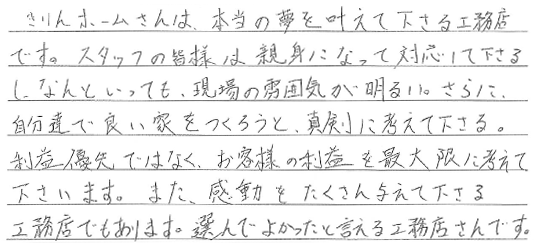 きりんホームさんは、本当の夢を叶えて下さる工務店
です。スタッフの皆様は親身になって対応して下さる
し、なんといっても、現場の雰囲気が明るい。さらに、
自分達で良い家をつくろうと、真剣に考えて下さる。
利益優先ではなく、お客様の利益を最大限に考えて
下さいます。また、感動をたくさん与えて下さる
工務店でもあります。選んでよかったと言える工務店さんです。